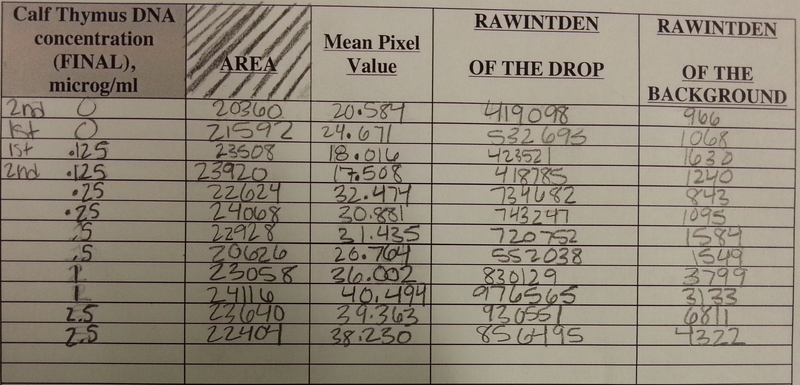 Calf Thymus DNA concentration (FINAL), microg/ml AREA Mean Pixel Value RAWINTDEN OF THE DROP RAWINTDEN OF THE BACKGROUND
2nd 0 20360 20.584 419098 966
1st 0 21592 24.671 532695 1068
1st .125 23508 18.016 423521 1630
2nd .125 23920 17.508 418785 1240
.25 22624 32.474 734682 843
.25 24068 30.881 743247 1095
.5 22928 31.435 720752 1584
.5 20626 26.764 552038 1549
1 23058 36.002 830129 3799
1 24116 40.494 976565 3133
2.5 23640 39.363 930551 6811
2.5 22404 38.230 856495 4322